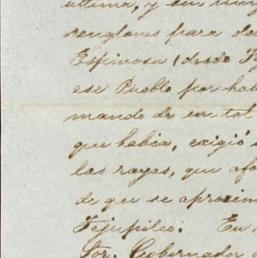 última, y sin
renglones para
Espinosa (desde
ese Pueblo por
mando de ser tal
que había, exigió
las rayas, que
de que se
Tejupilco. En
Sor. Gobernador